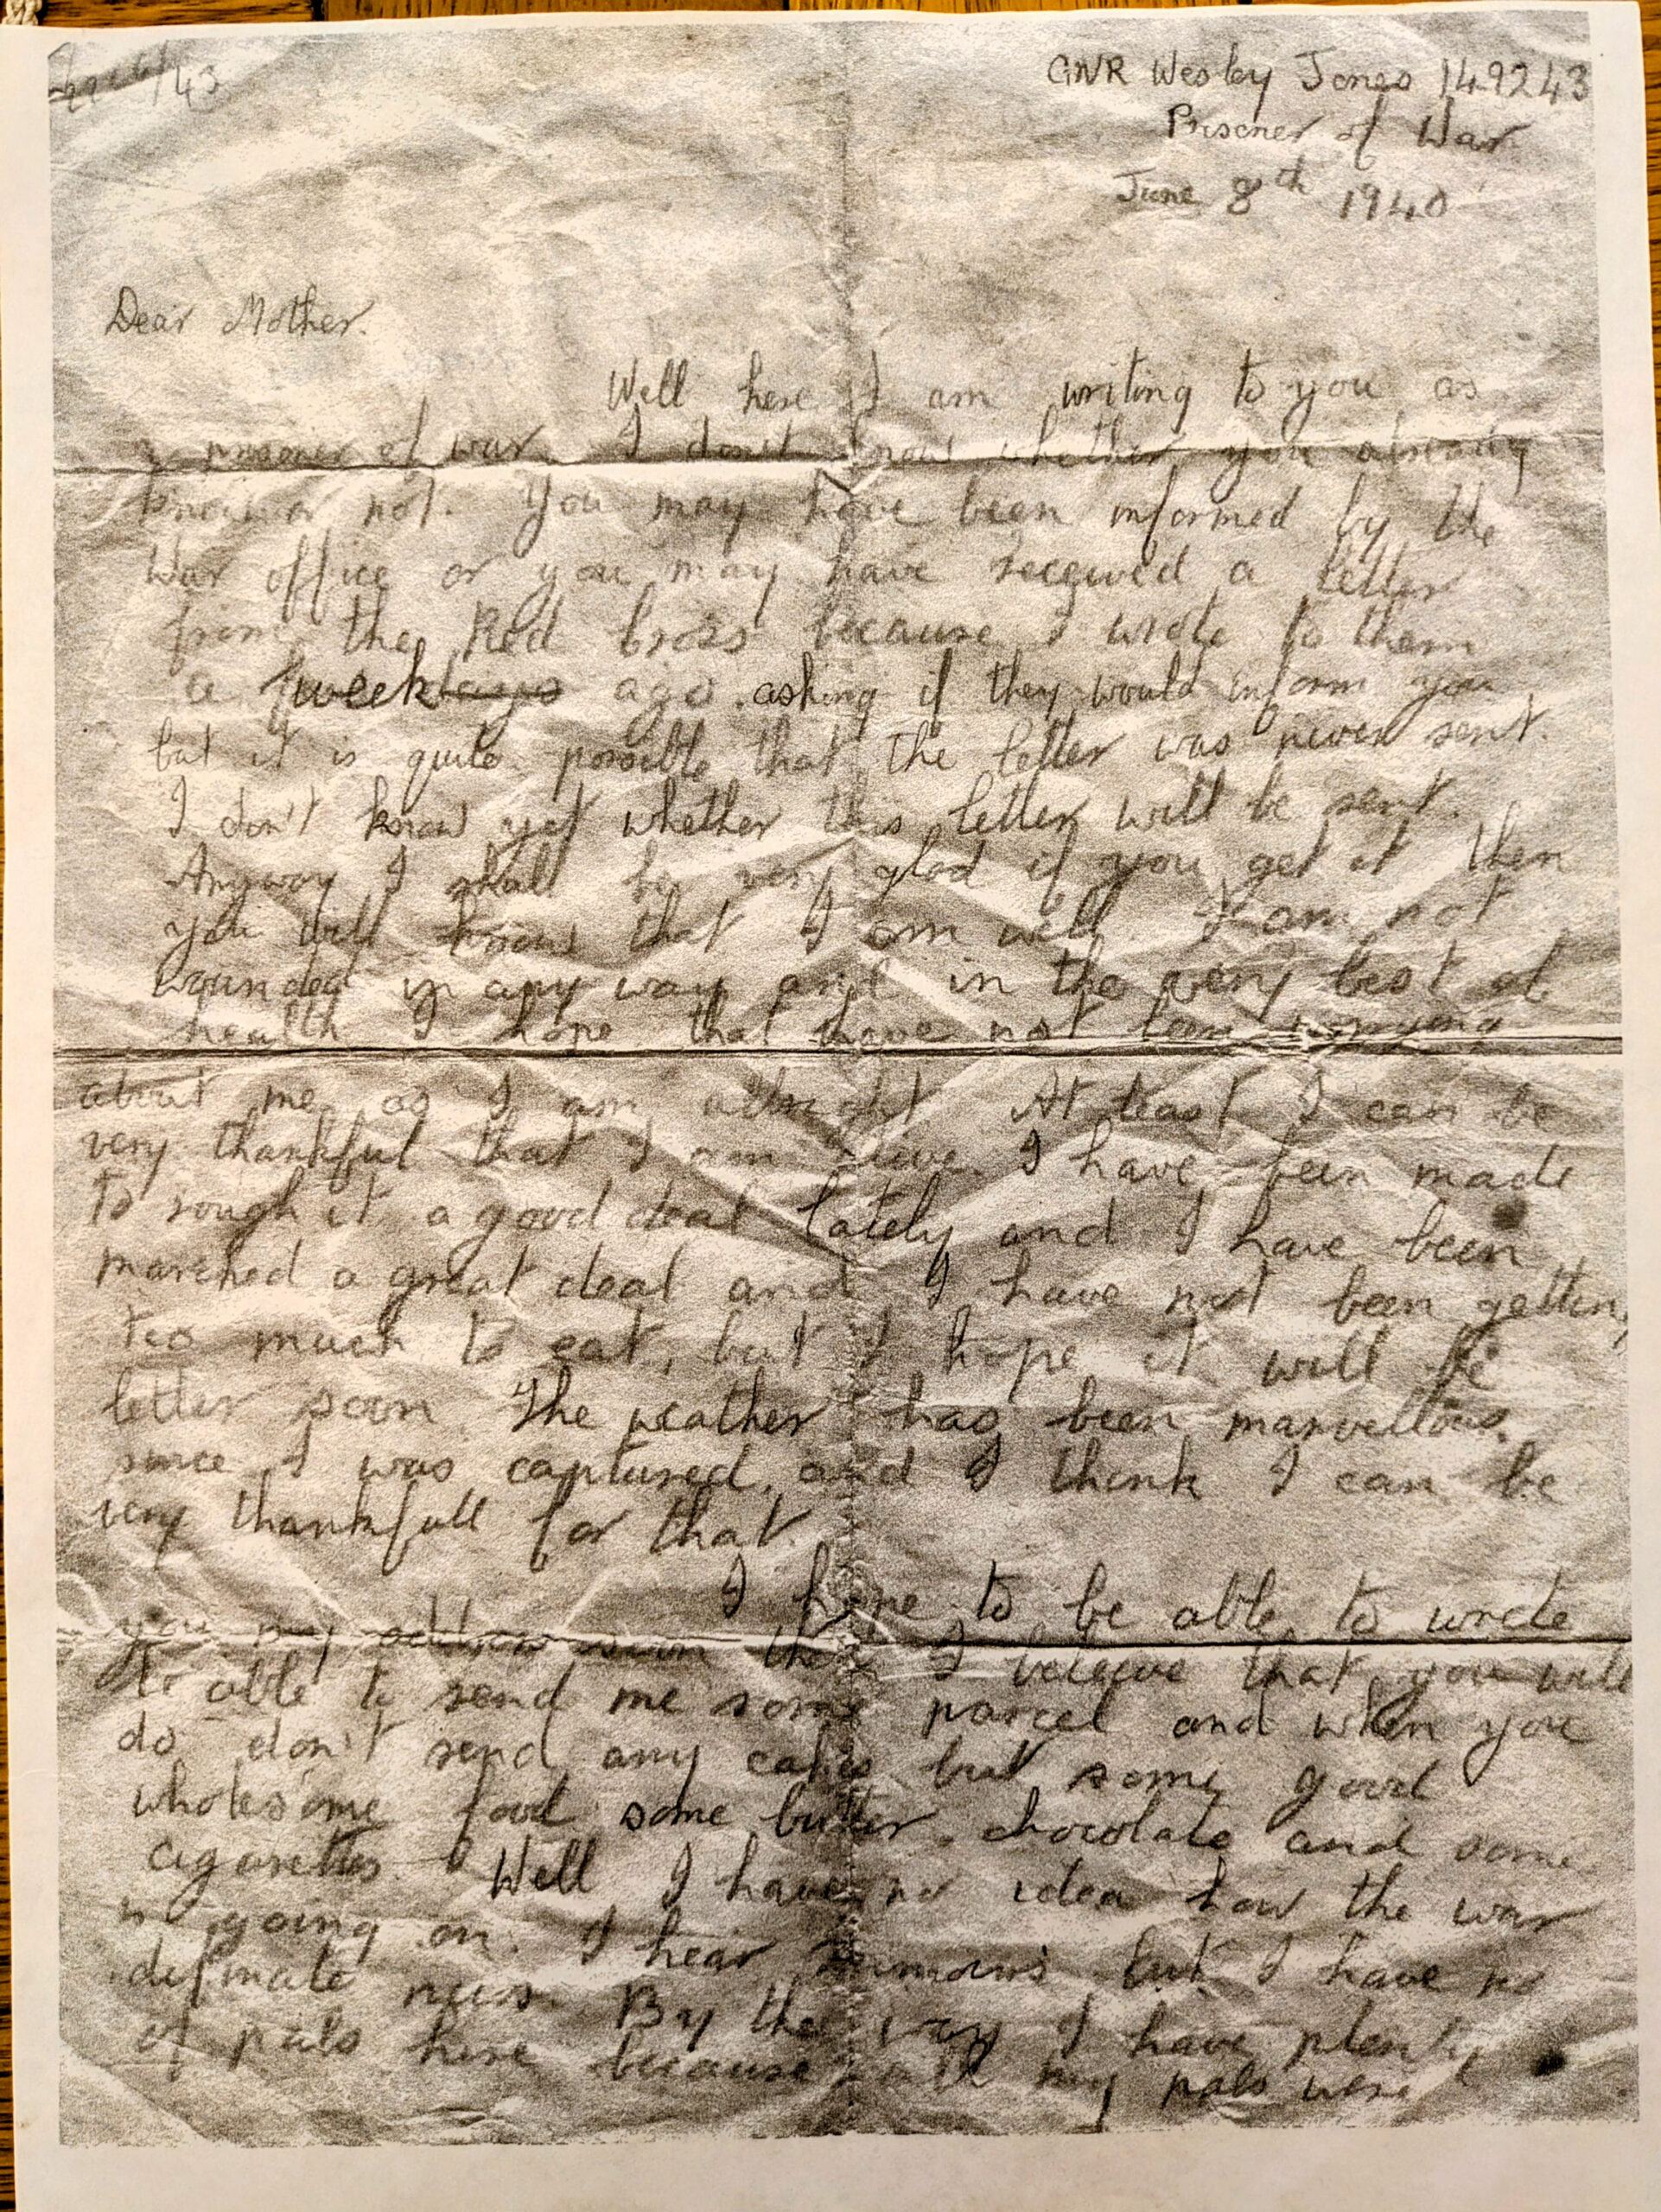 /43
GNR Wesley Jones 149243
Prisoner of War
June 8th 1940
Dear Mother.
Well here I am writing to you as
a prisoner of war. I don't know whether you already
know or not. You may have been informed by the
War office or you may have received a letter
from the Red Cross because I wrote to them
a week ago asking if they would inform you
but it is quite possible that the letter was never sent.
I don't know yet whether this letter will be sent.
Anyway I shall be very glad if you get it then
you will know that I am well. I am not
wounded in any way and in the very best of
health I hope that have not been worrying
about me as I am allright At least I can be
very thankful that I am alive. I have been made
to rough it a good deal lately and I have been
marched a great deal and I have not been getting
too much to eat, but I hope it will be
better soon The weather has been marvellous
since I was captured, and I think I can be
very thankfull for that.
I hope to be able to write
you my address soon then I believe that you will
be able to send me some parcel and when you
do don't send any cakes but some good
wholesome food some butter, chocolate and some
cigarettes. Well I have no idea how the war
is going on. I hear rumours but I have no
definate news. By the way I have plenty
of pals here because all my pals were